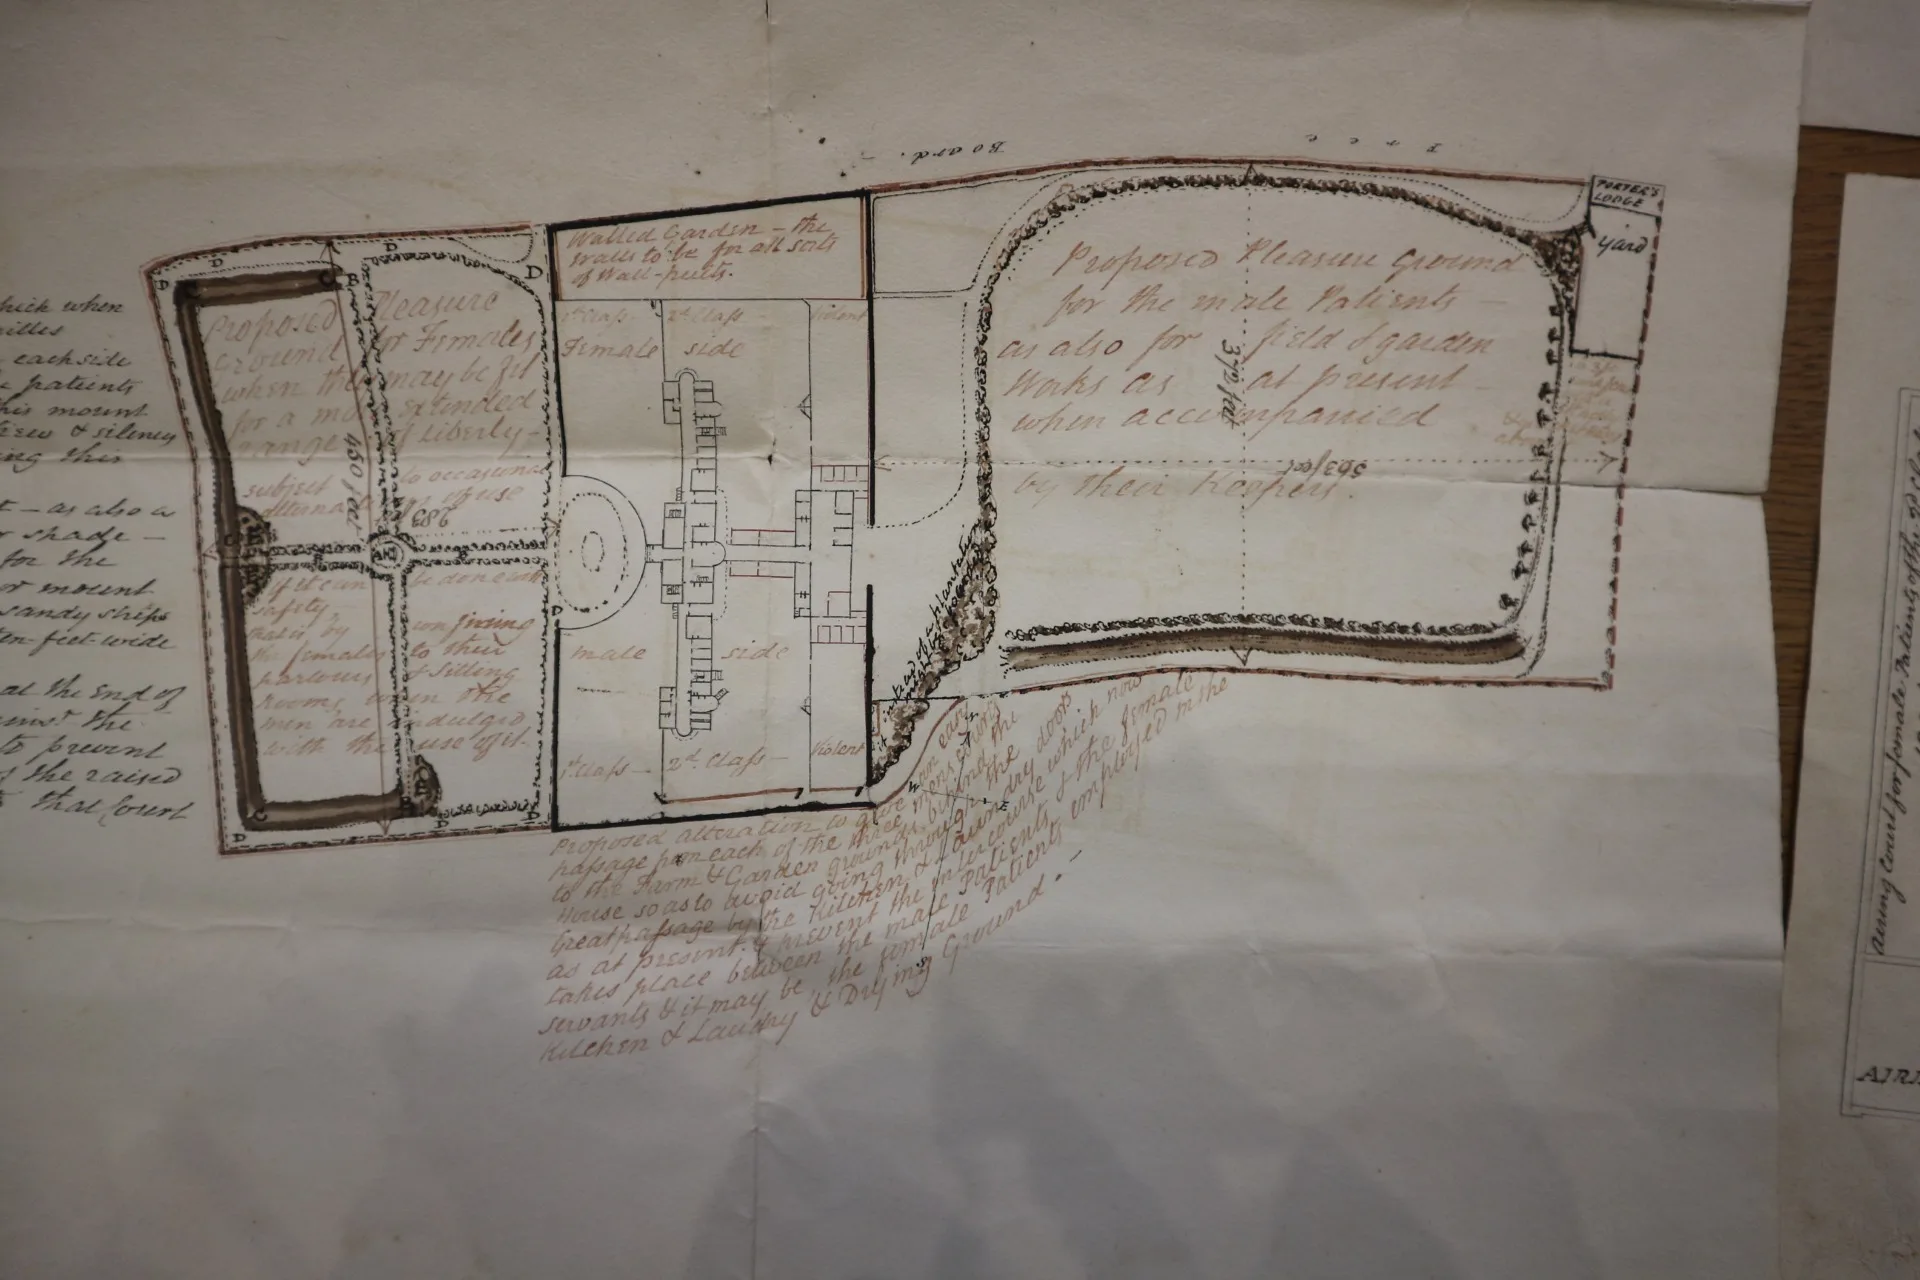 hich when
each side
patients
his mount
view &
ing this
t - as also a
shade -
for the
or mount
sandy ships
ten feet wide
at the End of
the
to prevent
the raised
that Court
Free Board.
PORTER'S
LODGE
Yard
Walled Garden - the
walls to be for all sorts
of Wall-fruits.
Proposed Pleasure
Ground for Females
when they may be fit
for a more extended
range of Liberty -
subject to occasional
alternation of use
450 feet
283
if it can be done with
safety,
that is by confining
the females to their
parlours & sitting
rooms when the
men are indulged
with the use of it.
1st Class - 2d Class - Violent
Female side
male side
1st Class - 2d Class - Violent
Proposed Pleasure Ground
for the male Patients -
as also for field & garden
Works as at present -
when accompanied
by their Keepers.
372 feet
563 feet
Proposed alteration to give an easy
passage from each of the three mens courts
to the Farm & Garden grounds behind the
House so as to avoid going through the
Great passage by the Kitchen & Laundry doors
as at present & prevent the intercourse which now
takes place between the male Patients & the female
servants & it may be the female Patients employed in the
Kitchen & Laundry & Drying Ground.
airing Court for female Patients of the 2d Class
AIRI